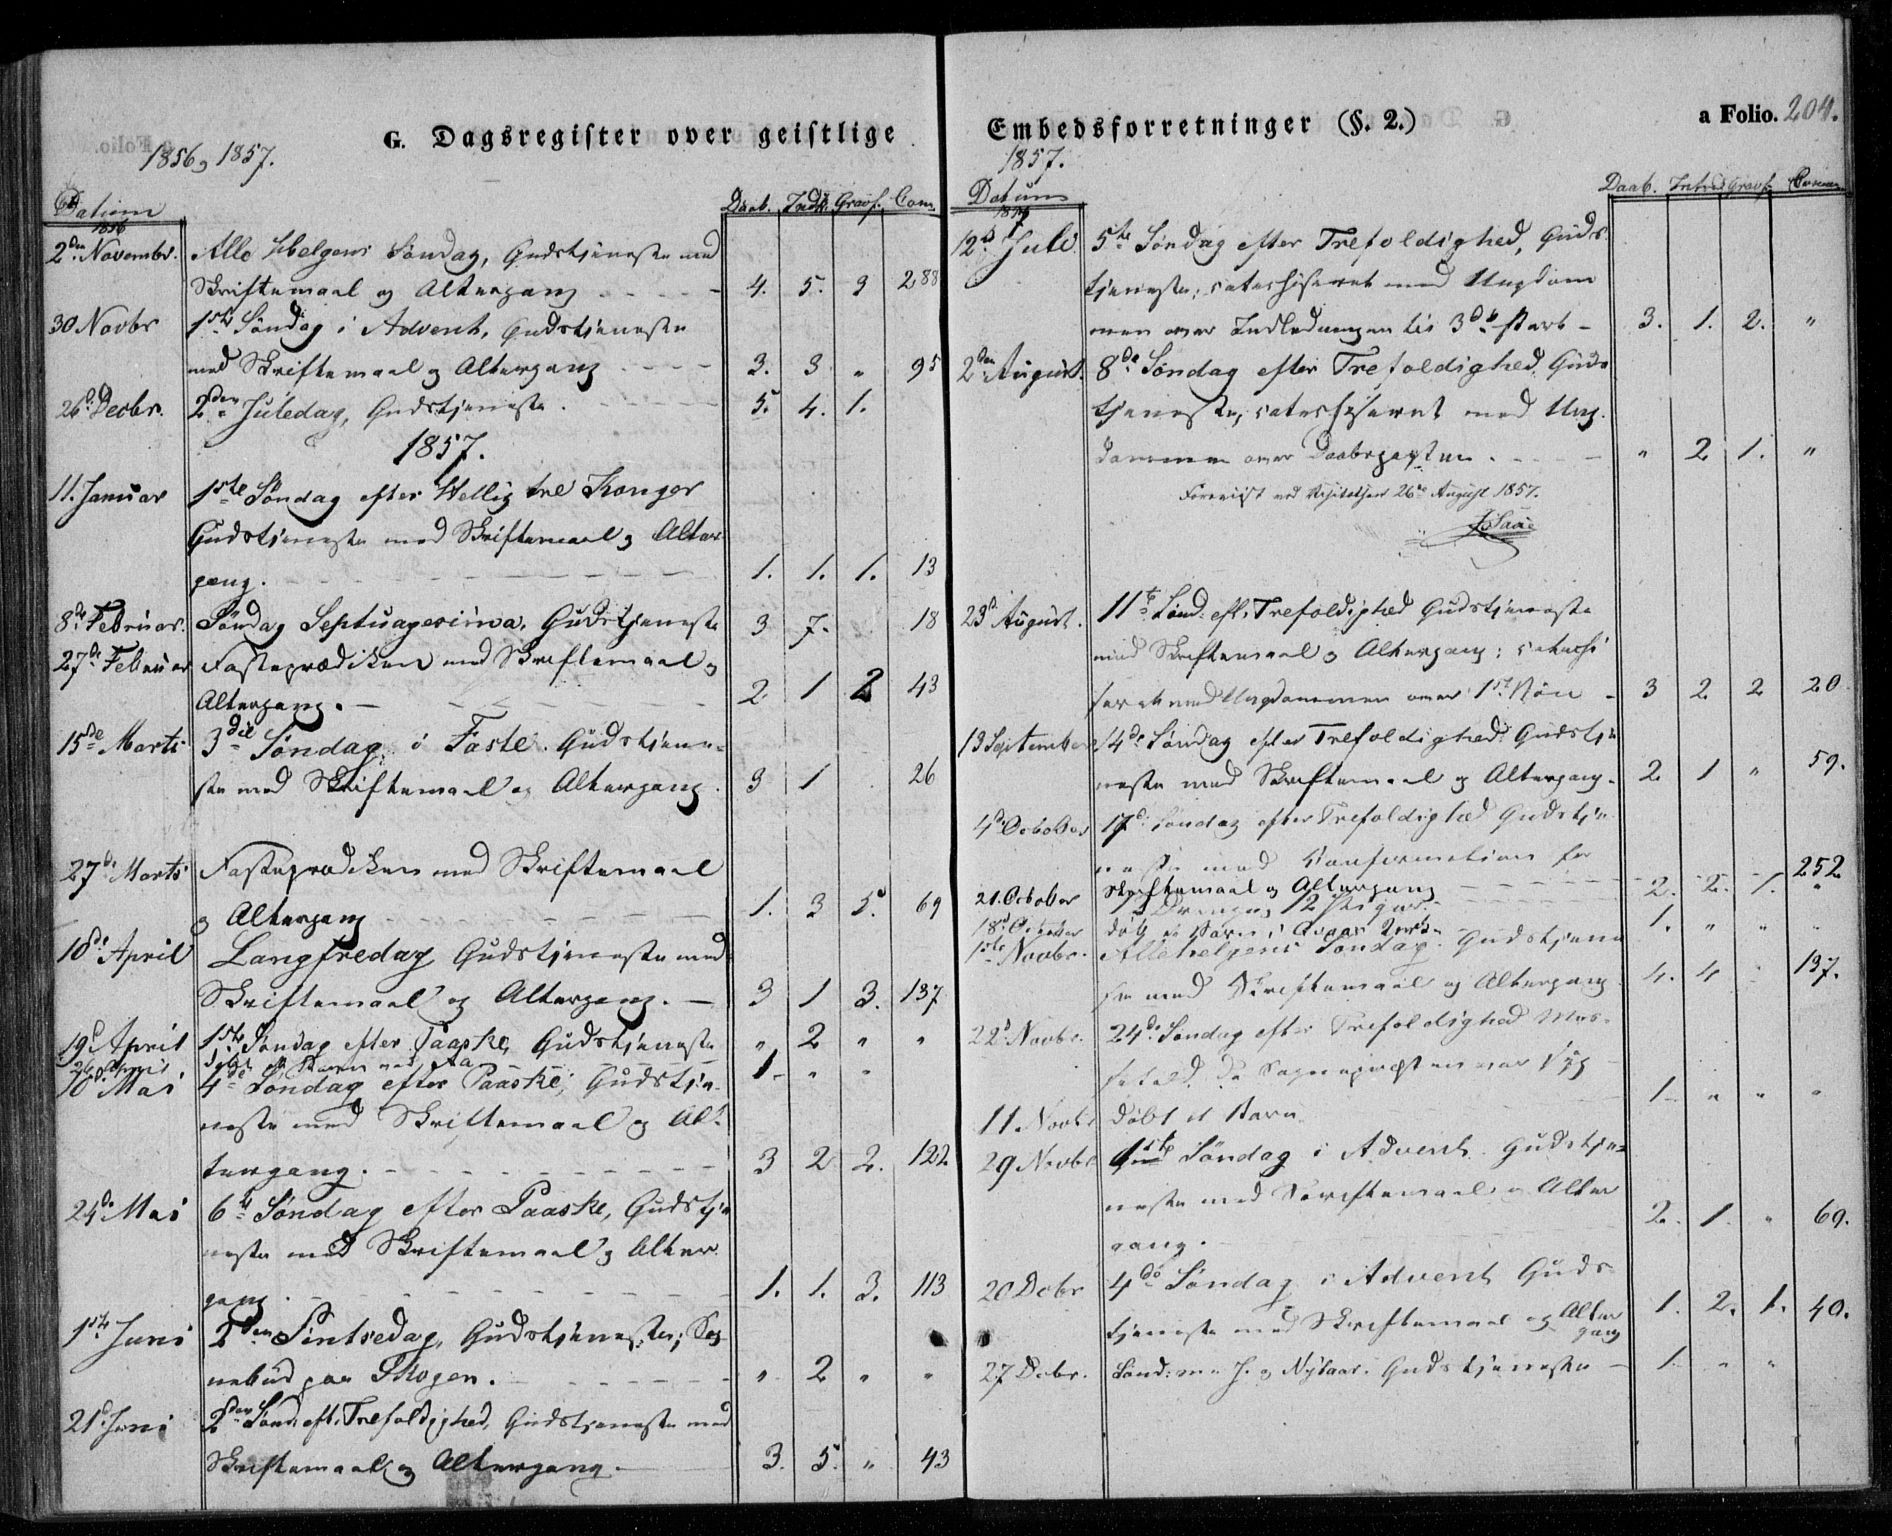 G. Dagsregister over geistlige
1856 og 1857.
Datum Daab. Indl. Gravf. Com.
1856
2den Novembr. Alle Helgens Søndag, Gudstjeneste med
Skriftemaal og Altergang 4. 5. 3 288
30 Novbr 1ste Søndag i Advent, Gudstjeneste
med Skriftemaal og Altergang 3. 3 „ 95
26d. Decbr. 2den Juledag, Gudstjeneste. 5. 4. 1.
1857.
11. Januar 1ste Søndag efter Hellig tre Konger
Gudstjeneste med Skriftemaal og Alter
gang. 1. 1. 1. 13
8de Februar. Søndag Septuagesima, Gudstjeneste 3 7. 18
27de Februar Fasteprædiken med Skriftemaal og
Altergang. 2 1 2 43
15de Marts 3die Søndag i Faste. Gudstjene-
ste med Skriftemaal og Altergang. 3 1 26
27de Marts Fasteprædiken med Skriftemaal
og Altergang 1. 3 5. 69
10de April Langfredag Gudstjeneste med
Skriftemaal og Altergang. 3 1 3. 137
19d April 1ste Søndag efter Paaske, Gudstjeneste „ 2 „ „
26 April 1 „ „
10de Mai 4de Søndag efter Paaske, Gudstje-
neste med Skriftemaal og Al-
tergang. 3 2 2. 122
24de Mai 6te Søndag efter Paaske, Gudstje
neste med Skriftemaal og Alter
gang. 1. 1. 3. 113
1ste Juni 2den Pintsedag, Gudstjeneste; Sog
nebud paa Skogen. „ 2 „ „
21d Juni 2den Sønd. eft. Trefoldighed, Gudstjeneste med
Skriftemaal og Altergang. 3. 5. „ 43
Embedsforretninger (§. 2.)
a Folio. 204.
1857.
Datum Daab. Introd Gravf.
12d Juli 5te Søndag efter Trefoldighed, Guds
tjeneste; catechiseret med Ungdom
men over Indledningen til 3die Part 3. 1. 2. „
2den August. 8de Søndag efter Trefoldighed. Guds
tjeneste, catechiseret med Ung
dommen over Daabspagten. „ 2 1. „
Foreviist ved Visitatsen 26de August 1857.
23d August. 11te Sønd. eft. Trefoldighed Gudstjeneste
med Skriftemaal og Altergang; catechi
seret med Ungdommen over 1ste Bøn 3 2 2 20
13 September 14de Søndag efter Trefoldighed Gudstje
neste med Skriftemaal og Altergang. 2 1 „ 59.
4de October 17de Søndag efter Trefoldighed Gudstje
neste med Confirmation for
21. October Skriftemaal og Altergang 2. 2. 1. 252
Drenge 12 Piger.
18d October døbt et Barn i 1. „ „
1ste Novbr. Allehelgens Søndag. Gudstjene
ste med Skriftemaal og Altergang 4. 4 137.
22d Novbr. 24de Søndag efter Trefoldighed Mes-
sefald da Sognepræsten var syg
11 Novbr døbt et Barn 1 „ „ „
29 Novbr 1ste Søndag i Advent Gudstje-
neste med Skriftemaal og Alter
gang. 2. 1. „ 69.
20 Decbr 4de Søndag i Advent Guds
tjeneste med Skriftemaal og Alter
gang 1. 2. 1. 40.
27 Decbr. Sønd: m. J. og Nytaar. Gudstjeneste 1. „ „